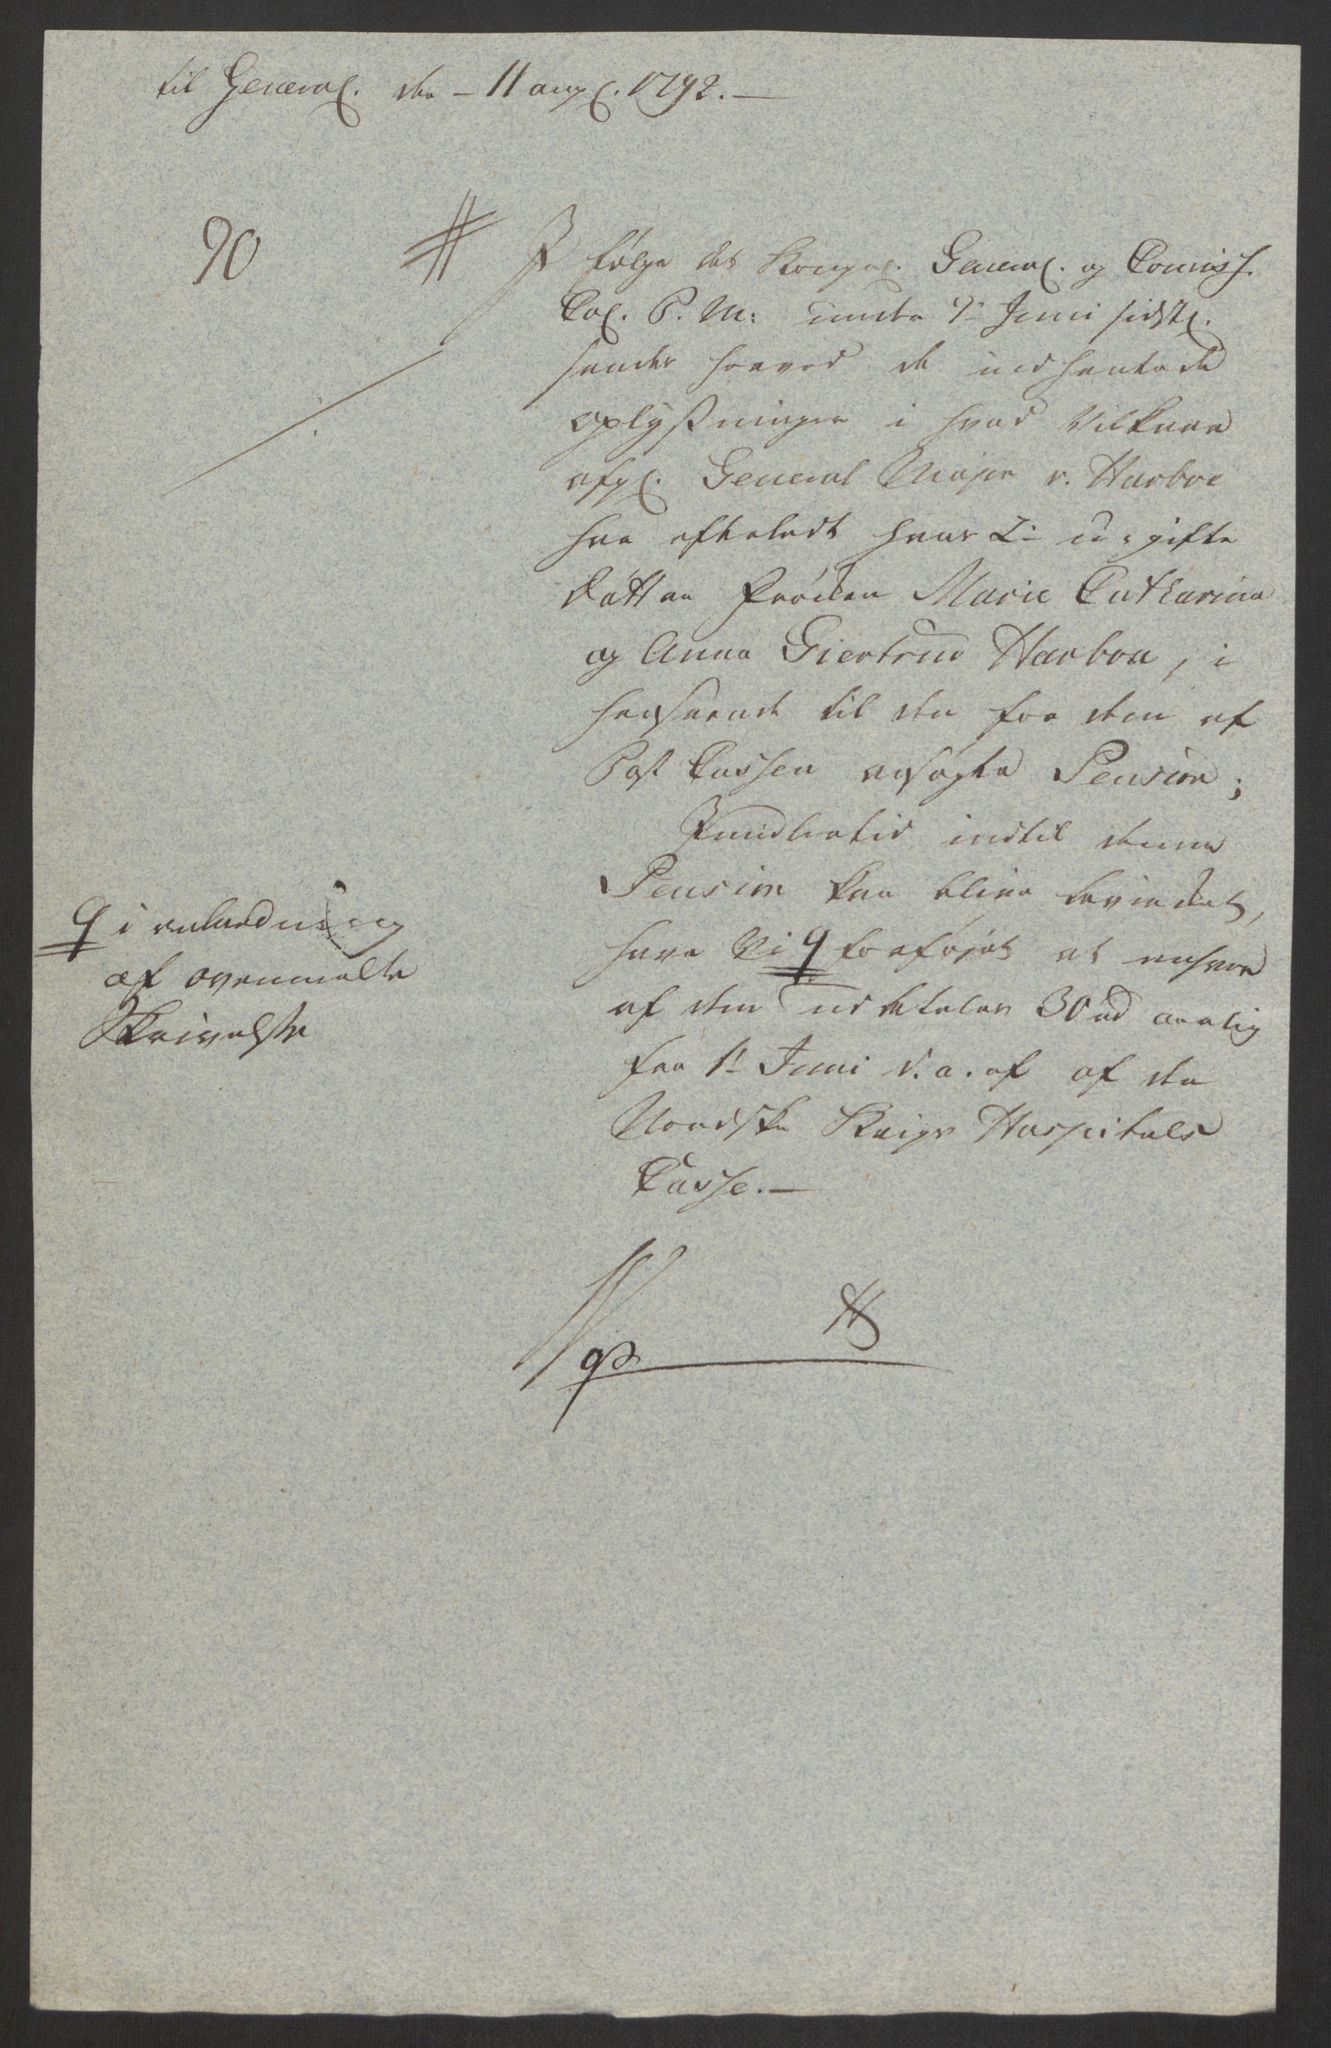 til General. den - 11 aug. 1792. -
90
I følge det Kongel. General. og Comiss.
Col. P. M: under 7de Juni sidstl.
sendes herved de indhentede
oplysninger i hvad Vilkaar
afg. General Major v. Harboe
har efterladt hans 2de ugifte
Døttre Frøcken Marie Catharina
og Anna Giertrud Harboe, i
henseende til den for dem af
Post Cassen ansøgte Pension;
Imidlertid indtil denne
Pension kan blive bevirket,
have Vi ꝗ forføjet at enhver
af dem udbetales 30 rd aarlig
fra 1te Juni d. a. af af den
Nordske Krigs Hospitals
Casse. -
ꝗ i anledning
af ovenmelte
Skrivelse